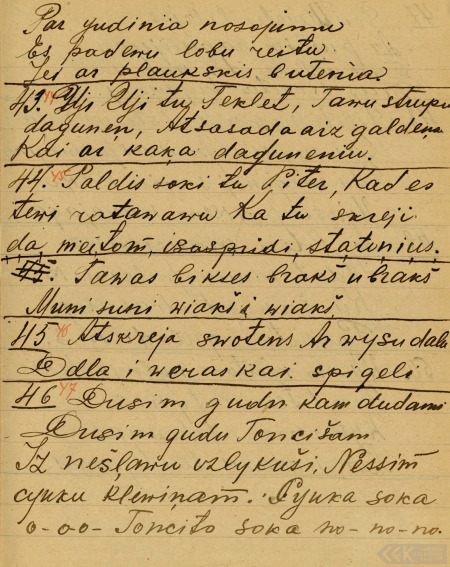 Par gudinia nosojumu
Es padewu lobu reitu
Jei ar plaukskis butenia.
43. 44 Uji Uji tu, Teklet, Tawu strupu
dagunen, Atsasada aiz galdeņa
Kai ar kaķa daguneniu.
44. 45 Paldis soki tu Piter, Kad es
tewi rotawawu Ka tu skreji
da meitom, isaspridi, statinius.
Tawas bikses brakš u brakš
Muni suni wiakš i wiakš.
45 46 Atskreja swotens Ar wysu dalu
Odla i weras kai spigeli
46 47 Dusim gudu kam dudami
Dusim gudu Toncišam
Iz nešļawu uzlykuši, Nessim
cyuku kļewiņam. Cyuka soka
o-o-o- Toncito soka no-no-no.